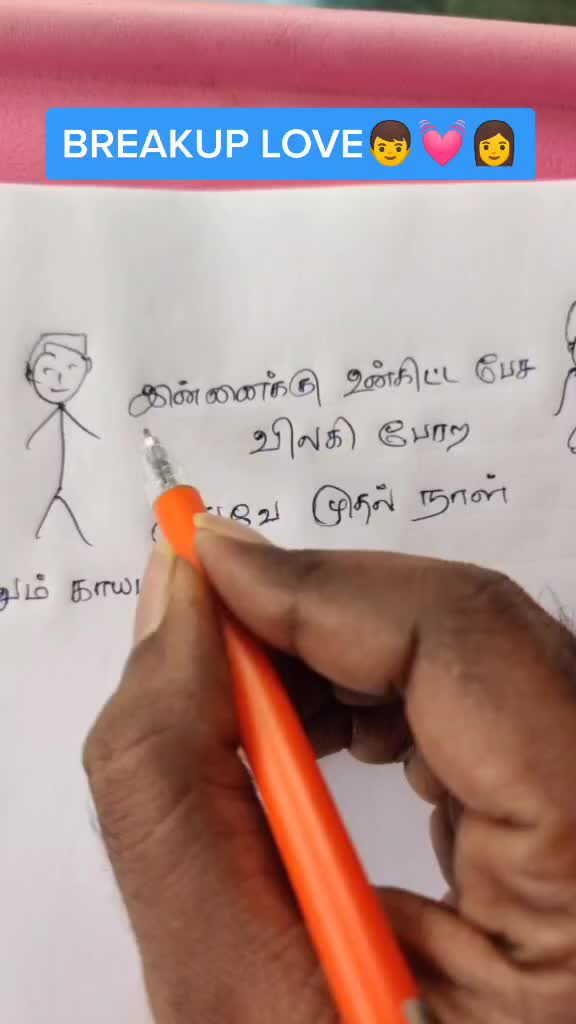 BREAKUP LOVE👦💓👩
இன்னைக்கு உன்கிட்ட பேச
விலகி போற
முதல் நாள்